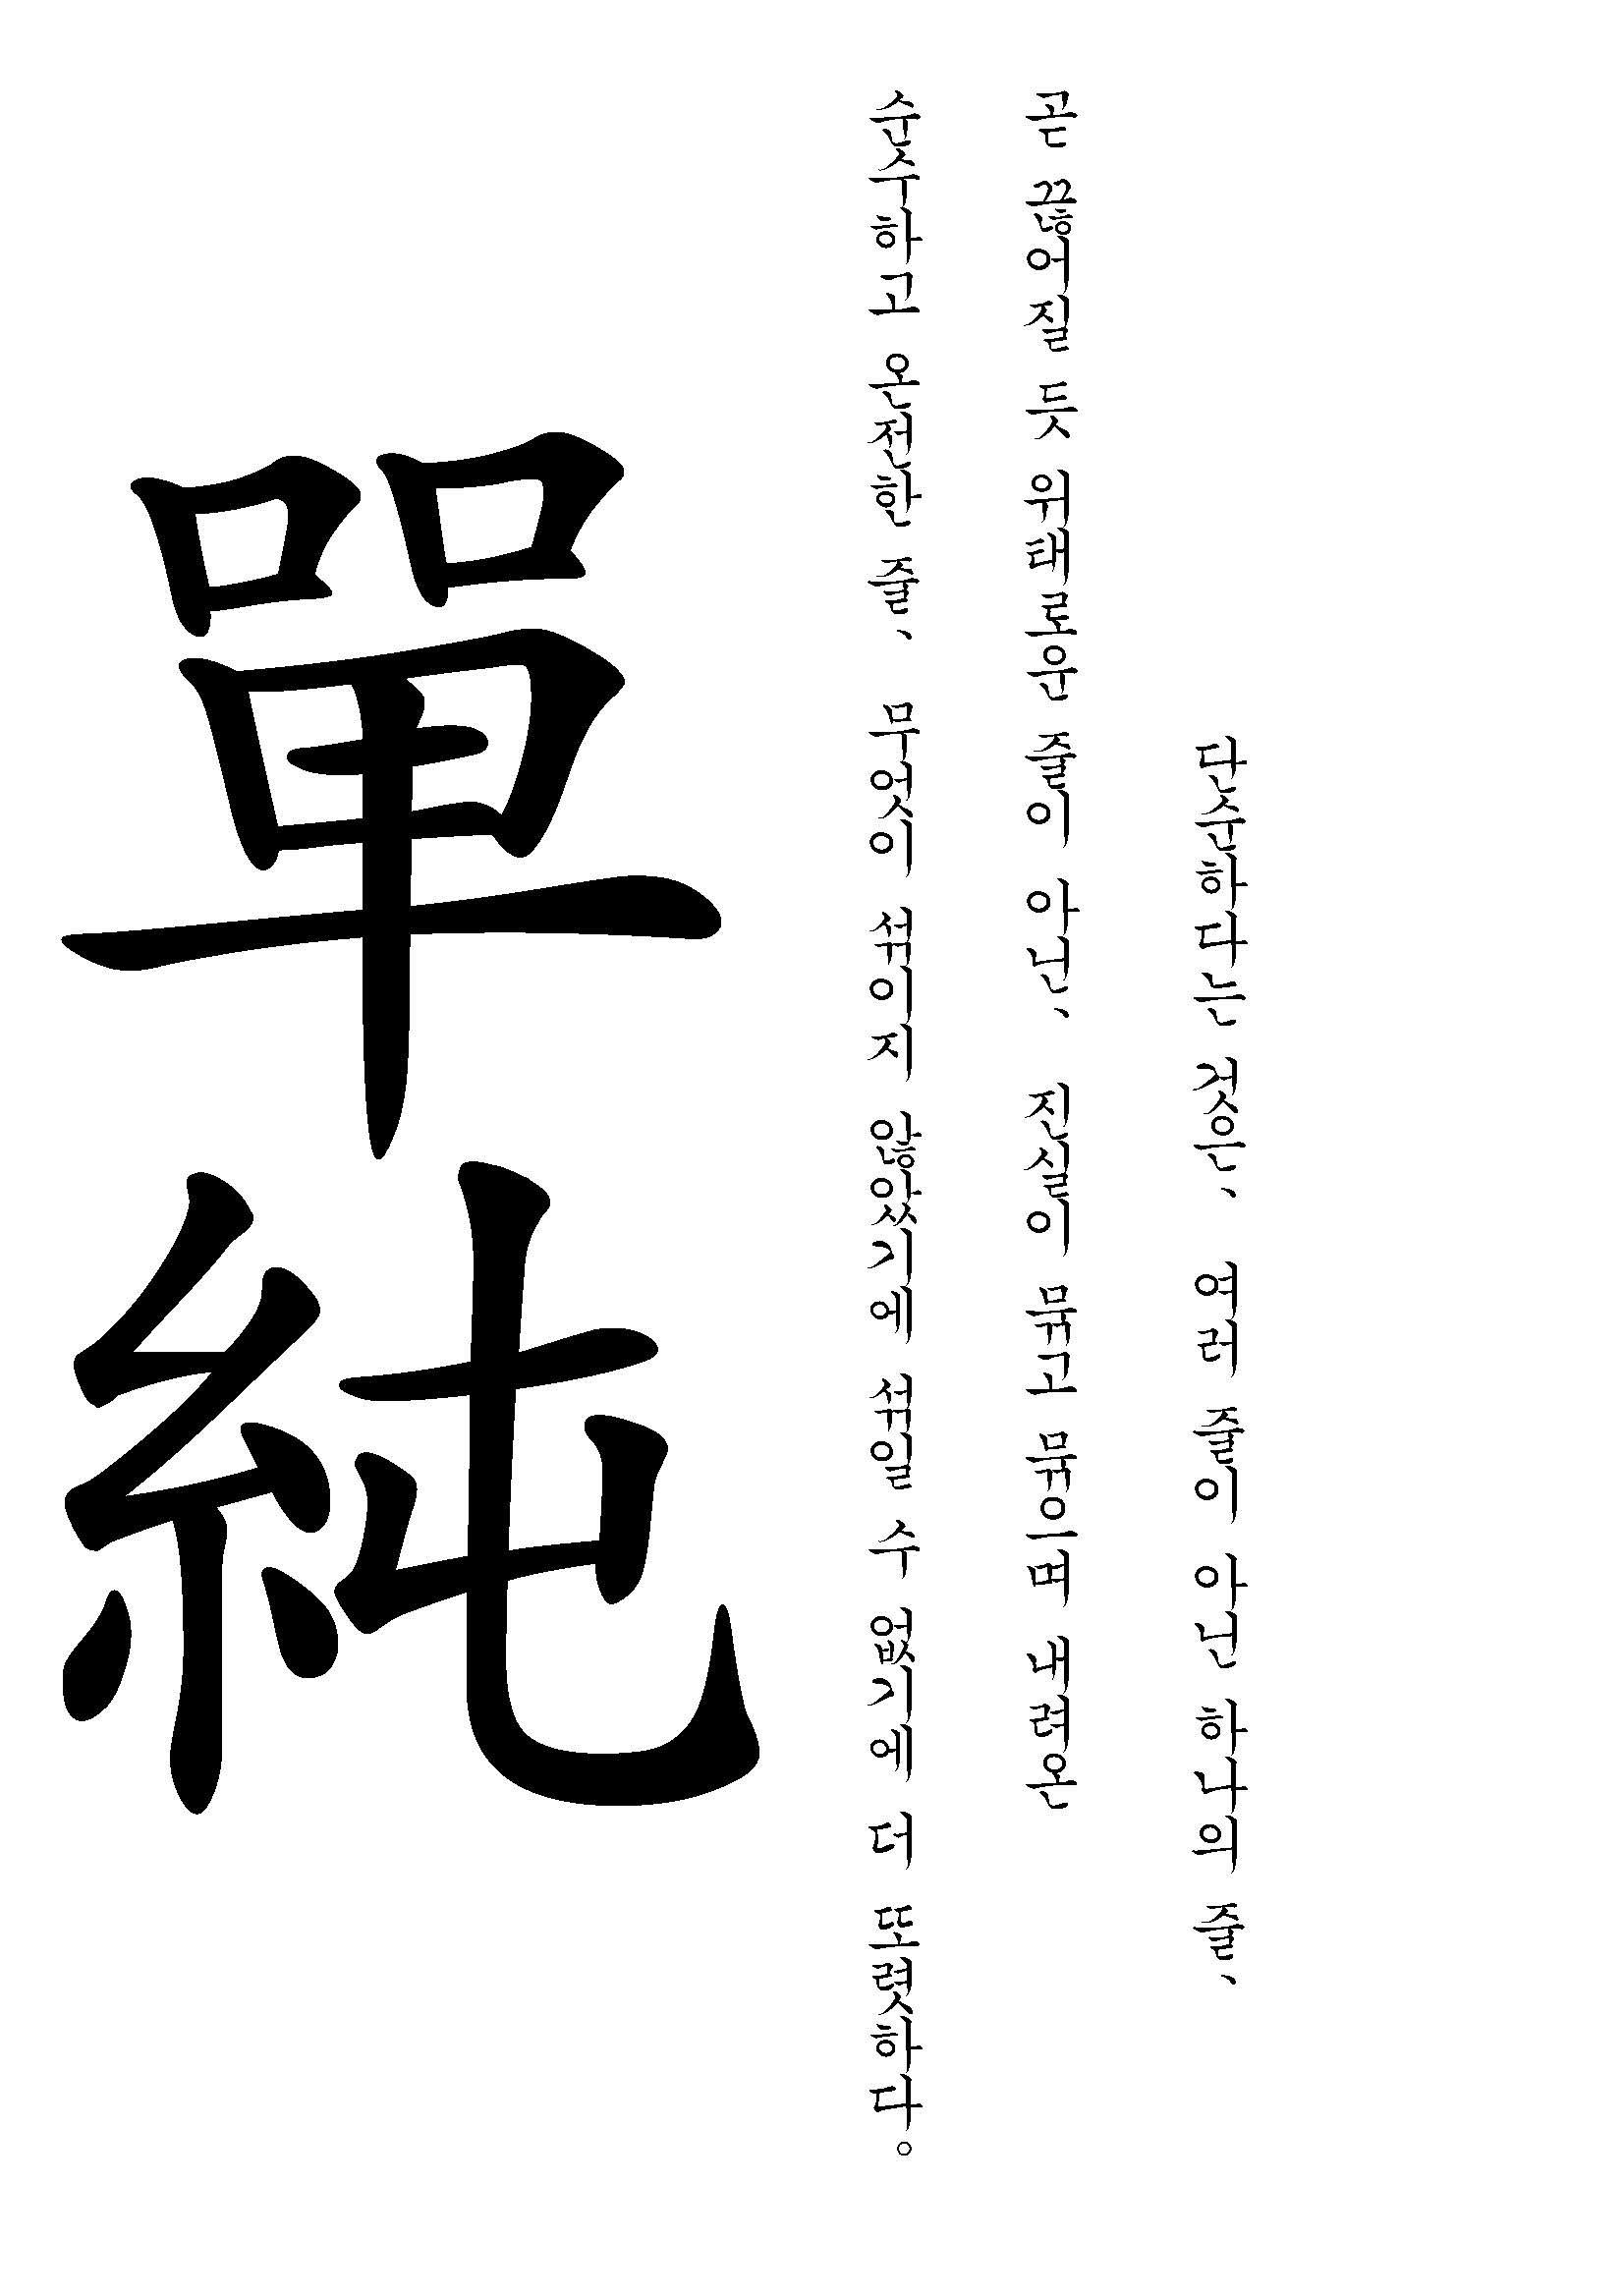 단순하다는 것은、 여러 줄이 아닌 하나의 줄、
곧 끊어질 듯 위태로운 줄이 아닌、 진실이 묶고 묶으며 내려온
순수하고 온전한 줄、 무엇이 섞이지 않았기에 섞일 수 없기에 더 또렷하다。
單純